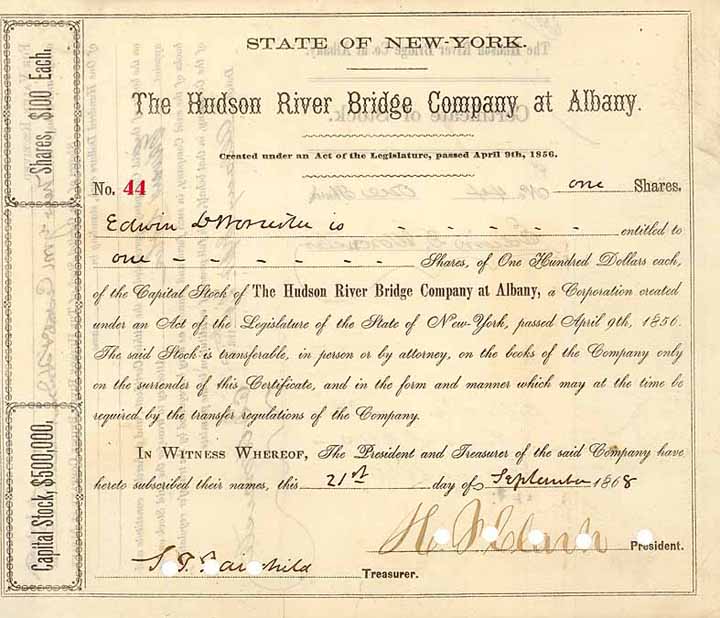 STATE OF NEW-YORK.
The Hudson River Bridge Company at Albany.
Created under an Act of the Legislature, passed April 9th, 1856.
No. 44 one Shares.
Edwin D Worcester is - - - - - - entitled to
one - - - - - - Shares, of One Hundred Dollars each,
of the Capital Stock of The Hudson River Bridge Company at Albany, a Corporation created
under an Act of the Legislature of the State of New-York, passed April 9th, 1856.
The said Stock is transferable, in person or by attorney, on the books of the Company only
on the surrender of this Certificate, and in the form and manner which may at the time be
required by the transfer regulations of the Company.
IN WITNESS WHEREOF, The President and Treasurer of the said Company have
hereto subscribed their names, this 21st day of September 1868
H. F. Clark President.
S. T. Fairchild Treasurer.
Shares, $100 Each.
Capital Stock, $500,000,